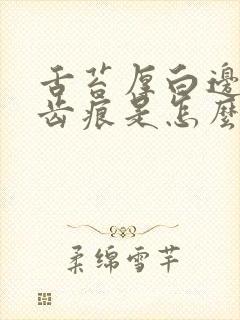 舌苔厚白邊
齿痕是怎麼
柔绵雪芊